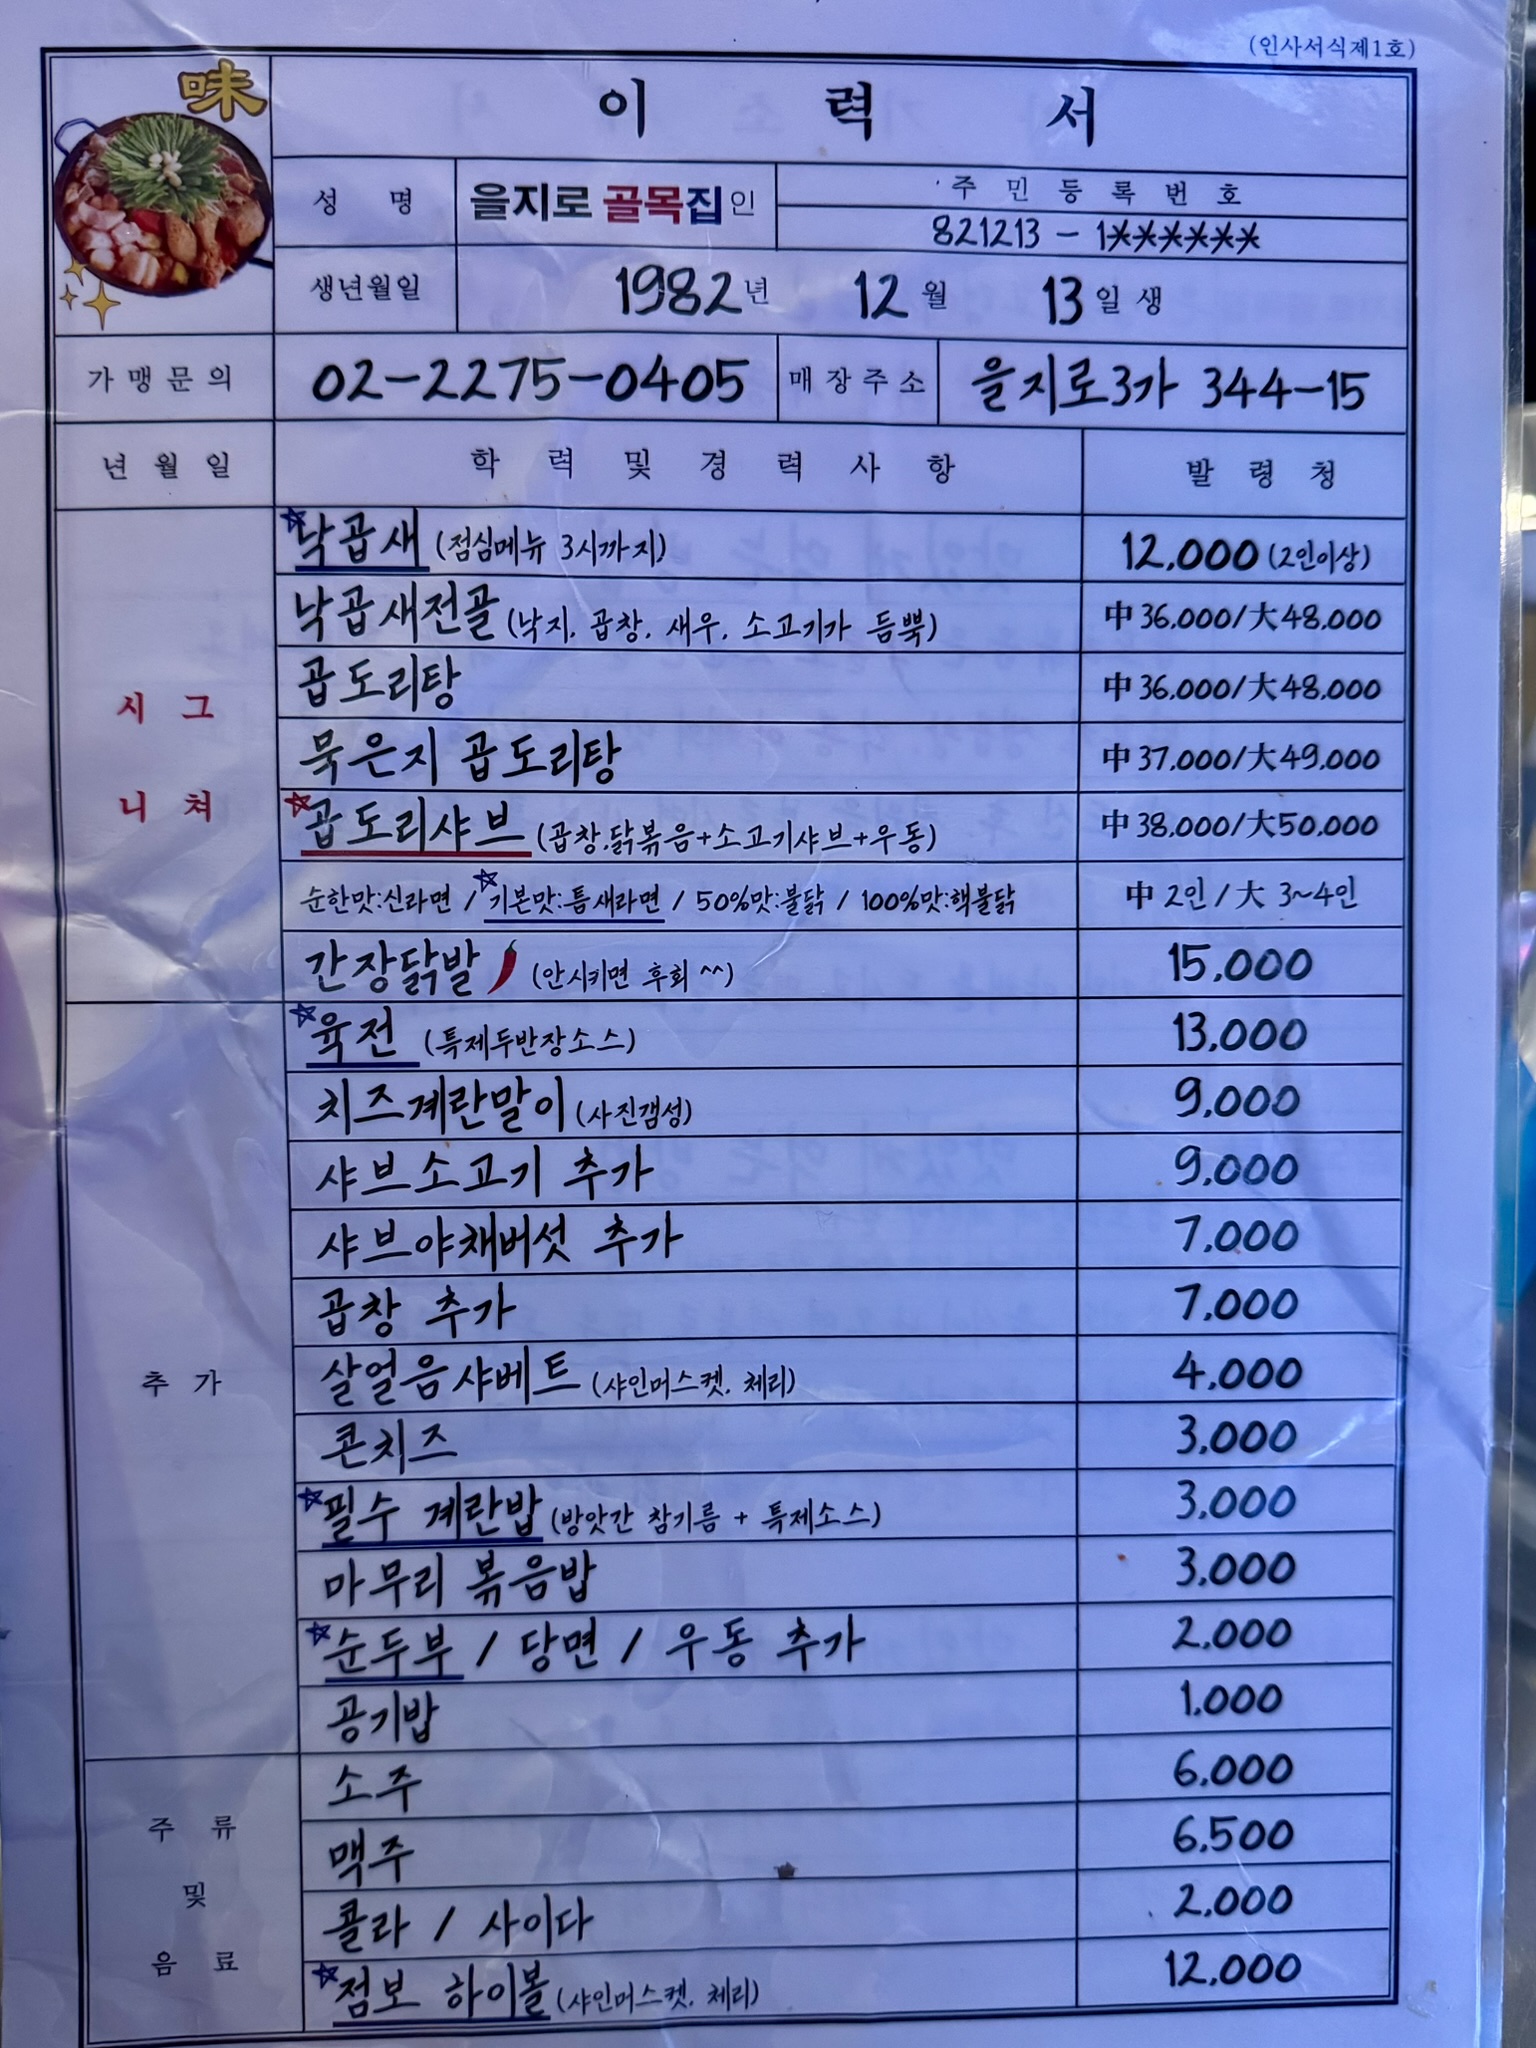 (인사서식제1호)
味
이 력 서
성 명 을지로 골목집 인 주 민 등 록 번 호
821213 - 1******
생년월일 1982년 12월 13일 생
가 맹 문 의 02-2275-0405 매 장 주 소 을지로3가 344-15
년 월 일 학 력 및 경 력 사 항 발 령 청
시 그 니 쳐
☆낙곱새 (점심메뉴 3시까지) 12,000 (2인이상)
낙곱새전골 (낙지, 곱창, 새우, 소고기가 듬뿍) 中 36,000/大 48,000
곱도리탕 中 36,000/大 48,000
묵은지 곱도리탕 中 37,000/大 49,000
☆곱도리샤브 (곱창,닭볶음+소고기샤브+우동) 中 38,000/大 50,000
순한맛:신라면 / ☆기본맛:틈새라면 / 50%맛:불닭 / 100%맛:핵불닭 中 2인 / 大 3~4인
간장닭발 (안시키면 후회 ^^) 15,000
추 가
☆육전 (특제두반장소스) 13,000
치즈계란말이 (사진갬성) 9,000
샤브소고기 추가 9,000
샤브야채버섯 추가 7,000
곱창 추가 7,000
살얼음샤베트 (샤인머스켓, 체리) 4,000
콘치즈 3,000
☆필수 계란밥 (방앗간 참기름 + 특제소스) 3,000
마무리 볶음밥 3,000
☆순두부 / 당면 / 우동 추가 2,000
공기밥 1,000
주 류 및 음 료
소주 6,000
맥주 6,500
콜라 / 사이다 2,000
☆점보 하이볼 (샤인머스켓, 체리) 12,000